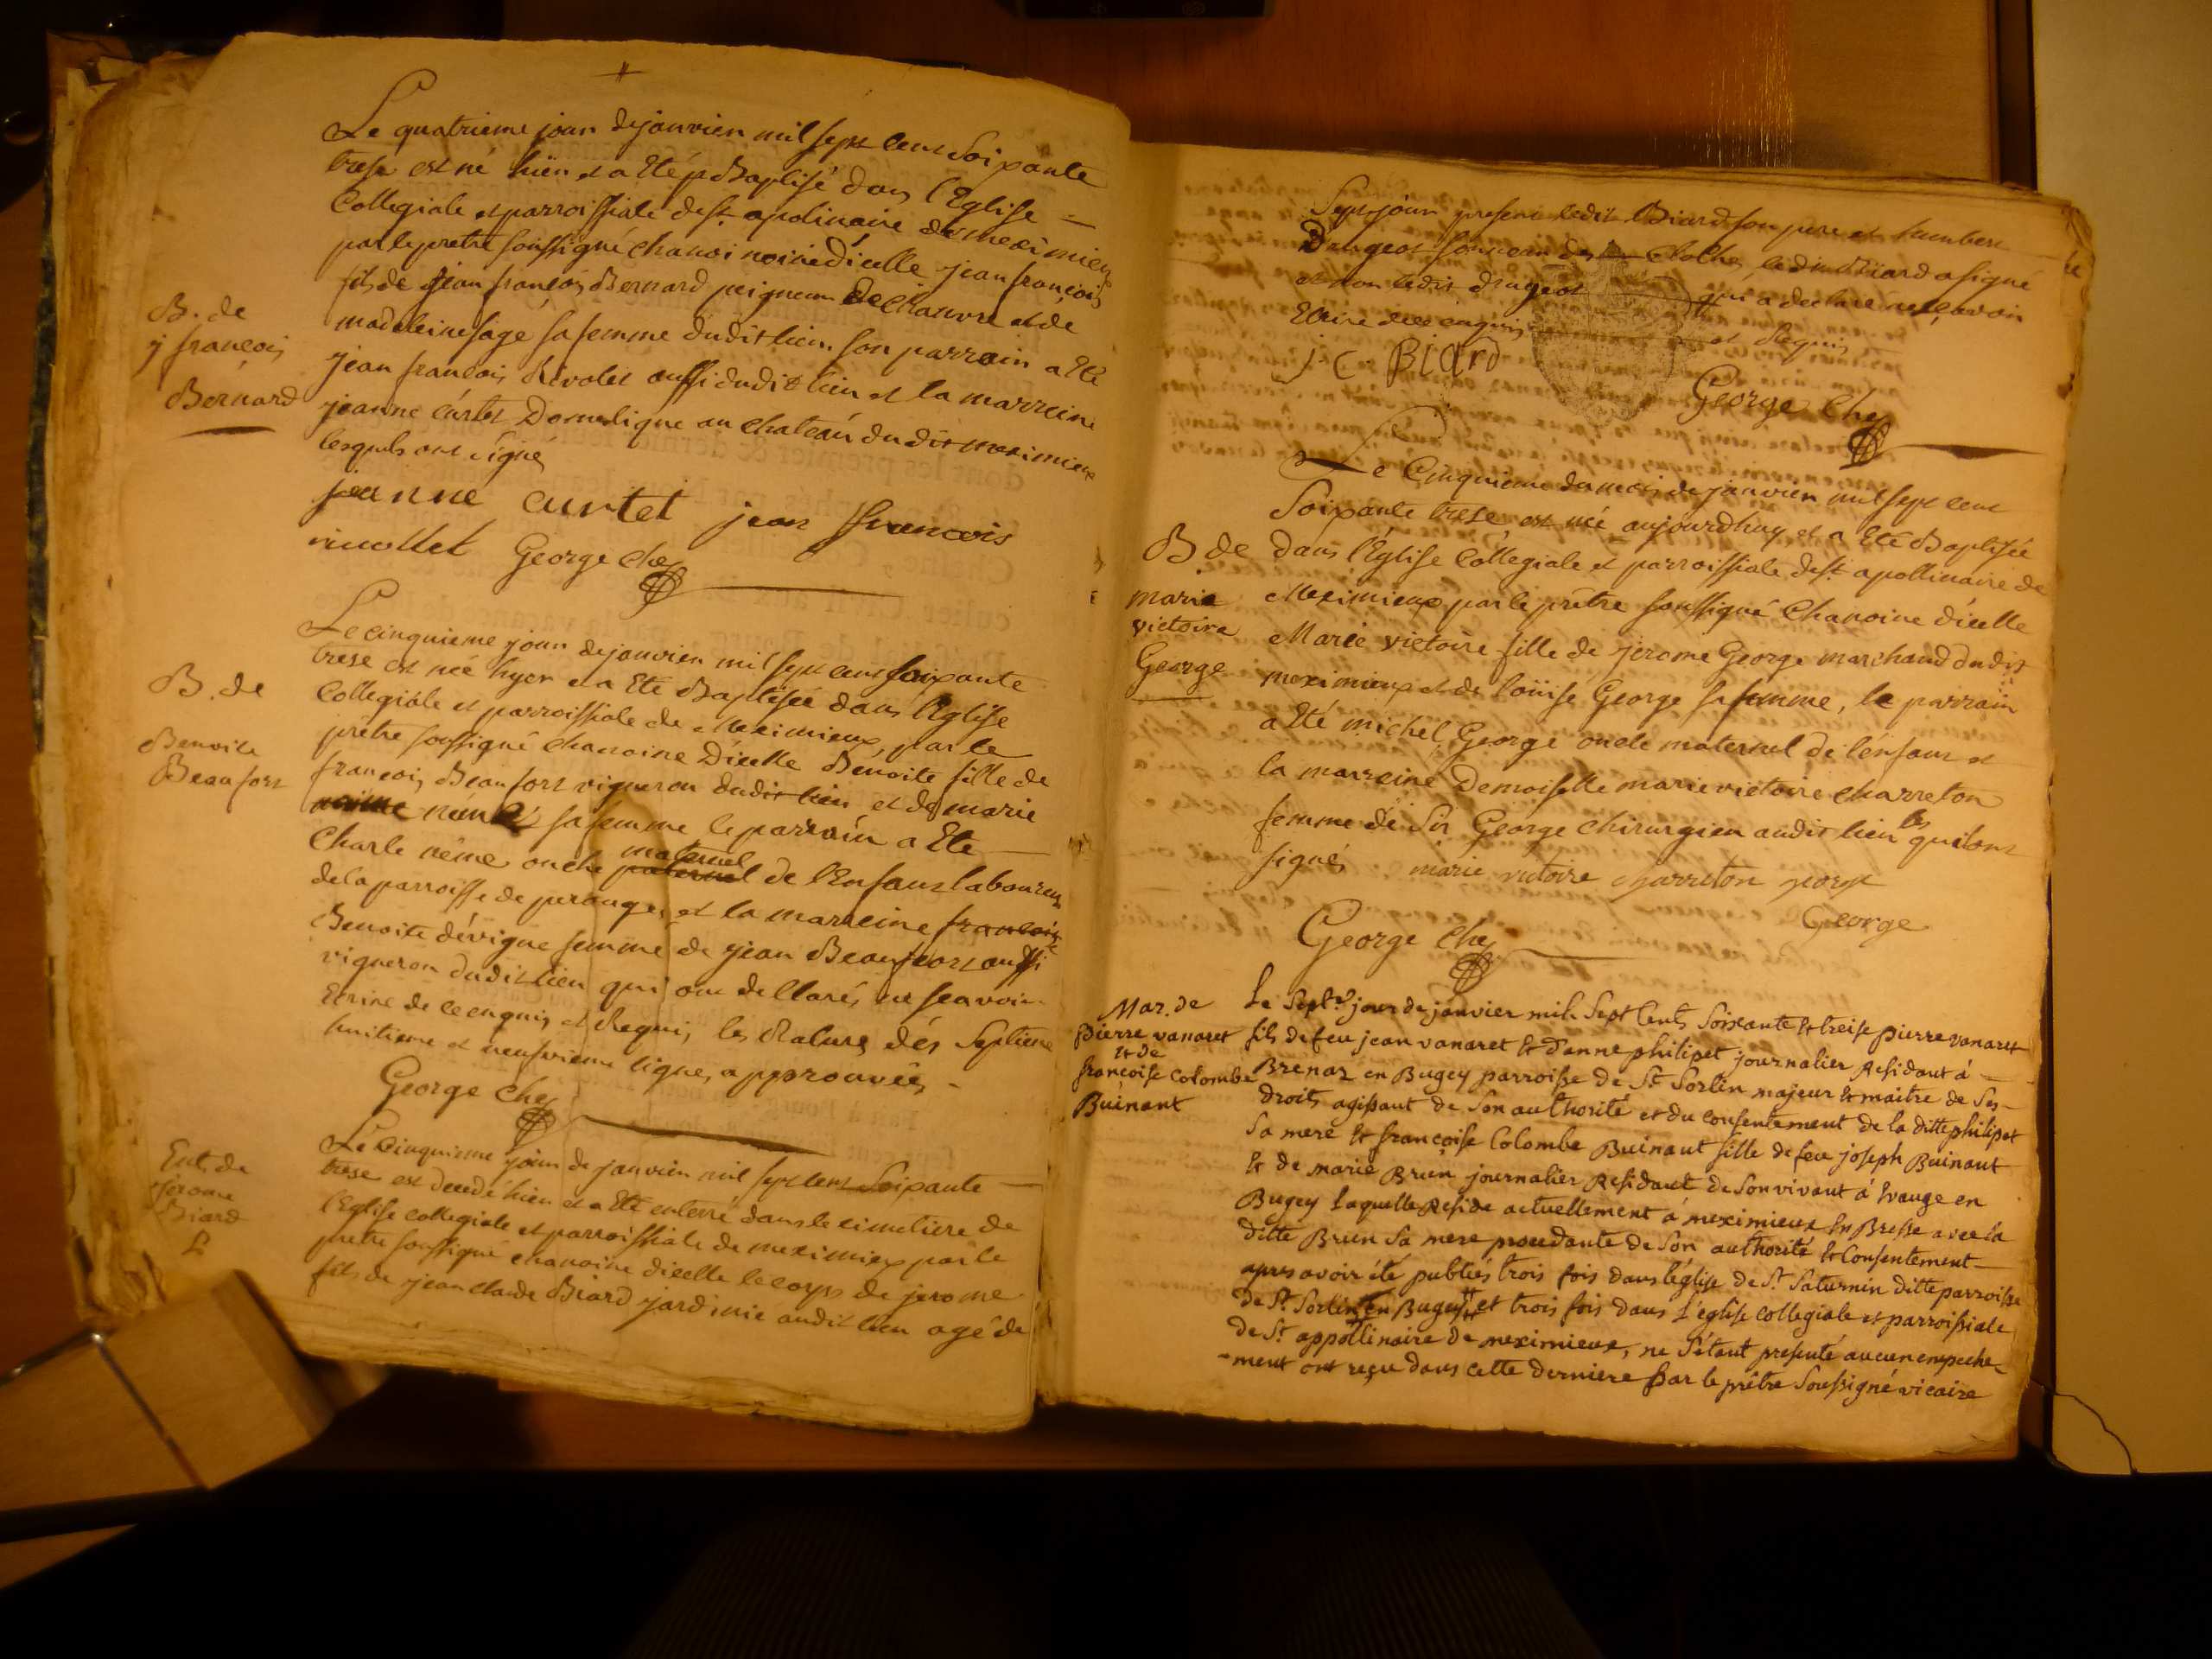 Le quatrieme jour de janvier mil sept cent Soixante
trese est né hier et a Eté Baptisé dans l'Eglise
Collegiale et parroissiale de st apolinaire de meximieux
par le pretre soussigné chanoinoine d'icelle jean françois
fils de jean françois Bernard peigneur de chanvre et de
B. de
j françois
Bernard
madeleine sage sa femme dudit lieu son parrain a Eté
jean francois Rivolet aussi dudit lieu et la marreine
jeanne curtet Domestique au chateau du dit meximieux
lesquels ont signé
jeanne curtet jean francois
rivollet George che
Le cinquieme jour de janvier mil sept cent soixante
trese est nee hyer et a Eté Baptisée dans l'Eglise
B. de
Benoite
Beaufort
Collegiale et parroissiale de Meximieux, par le
prêtre soussigné chanoine D'icelle Benoite fille de
francois Beaufort vigneron dudit lieu et de marie
néme sa femme le parrain a Ete
maternel
Charle néme oncle paternel de l'Enfant laboureur
de la parroisse de perouges, et la marreine francoise
Benoite dévigne femme de jean Beaufort aussi
vigneron dudit lieu qui ont dellarés ne scavoir
Ecrire de ce enquis et Requis, les Ratures dés Septieme
huitieme et neufvieme lignes approuvées
George che
Ent. de
jerome
Biard
Le Cinquieme jour de janvier mil sept cent Soixante
trese est decedé hier et a Eté enterré dans le cimetiere de
l'Eglise collegiale et parroissiale de meximieux par le
pretre soussigné chanoine dicelle le corps de jerome
fils de jean claude Biard jardinié audit lieu agé de
Sept jour present ledit Biard son pere et humbert
Drugeot sonneur des cloches ledit Biard a signé
et non ledit drugeot qui a declaré ne scavoir
Ecrire de ce enquis et Requis
j. c. Biard
George Che
Le Cinquieme du mois de janvier mil sept cent
Soixante trese est née aujourdhuy et a Eté Baptisée
B. de
marie
victoire
George
dans l'Eglise Collegiale et parroissiale de st apollinaire de
Meximieux par le prêtre soussigné Chanoine d'icelle
Marie victoire fille de jerome George marchand dudit
meximieux et de loüise George sa femme, le parrain
a Eté michel George oncle maternel de l'enfant et
la marreine Demoiselle marie victoire charreton
femme de Sir George chirurgien audit lieu lesquels ont
signés marie victoire charreton george
George
George che
Mar. de
pierre vanaret
et de
françoise Colombe
Buinant
Le Sept.e jour de janvier mil Sept Cents Soixante et treise pierre vanaret
fils de feu jean vanaret et d'anne philipet journalier Residant à
Brenaz en Bugey parroisse de St Sorlin majeur et maitre de Ses
droits agissant de Son authorité et du consentement de la ditte philipet
Sa mere et françoise Colombe Buinant fille de feu joseph Buinant
et de marie Brun journalier Residant de Son vivant à Evauge en
Bugey Laquelle Reside actuellement à meximieux En Bresse avec la
ditte Brun Sa mere procedante de Son authorité et Consentement
apres avoir été publiés trois fois dans l'église de St Saturnin ditte parroisse
de St Sorlin en Bugey et trois fois dans L'eglise collegiale et parroissiale
de St appollinaire de meximieux, ne S'étant presenté aucun empeche-
-ment ont reçu dans cette derniere par le prêtre Soussigné vicaire